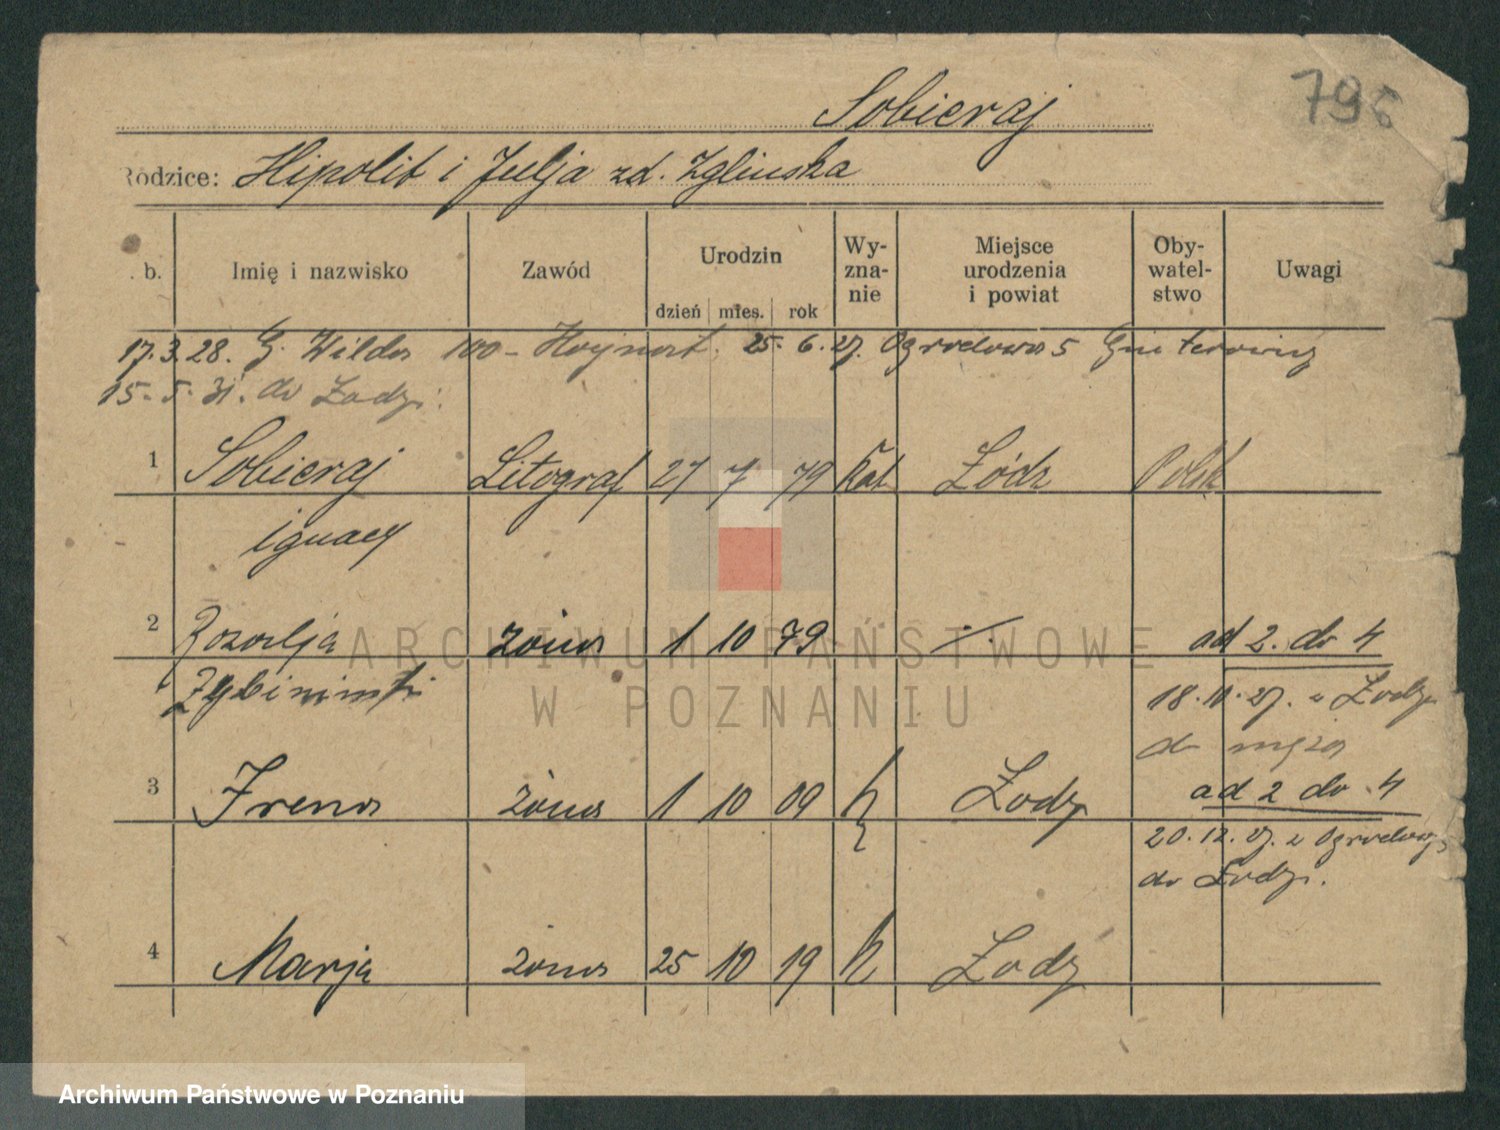 795
Sobieraj
Rodzice: Hipolit i Julja zd. Zglinska
. b. Imię i nazwisko Zawód Urodzin dzień mies. rok Wy-zna-nie Miejsce urodzenia i powiat Oby-watel-stwo Uwagi
17.3.28. G. Wilda 100 - 25.6.27. Ogrodowa 5
15.5.31. do Łodzi.
1 Sobieraj Litograf 27 7 79 Kat Łódz Polsk
Ignacy
2 Rozalja żona 1 10 79 ad 2. do 4
18.11.27. z Łodzi
do męża
3 Irena żona 1 10 09 k Łodzi ad 2 do 4
20.12.27. z Ogrodowej 5
do Łodzi.
4 Marja żona 25 10 19 k Łodz
ARCHIWUM PAŃSTWOWE
W POZNANIU
Archiwum Państwowe w Poznaniu